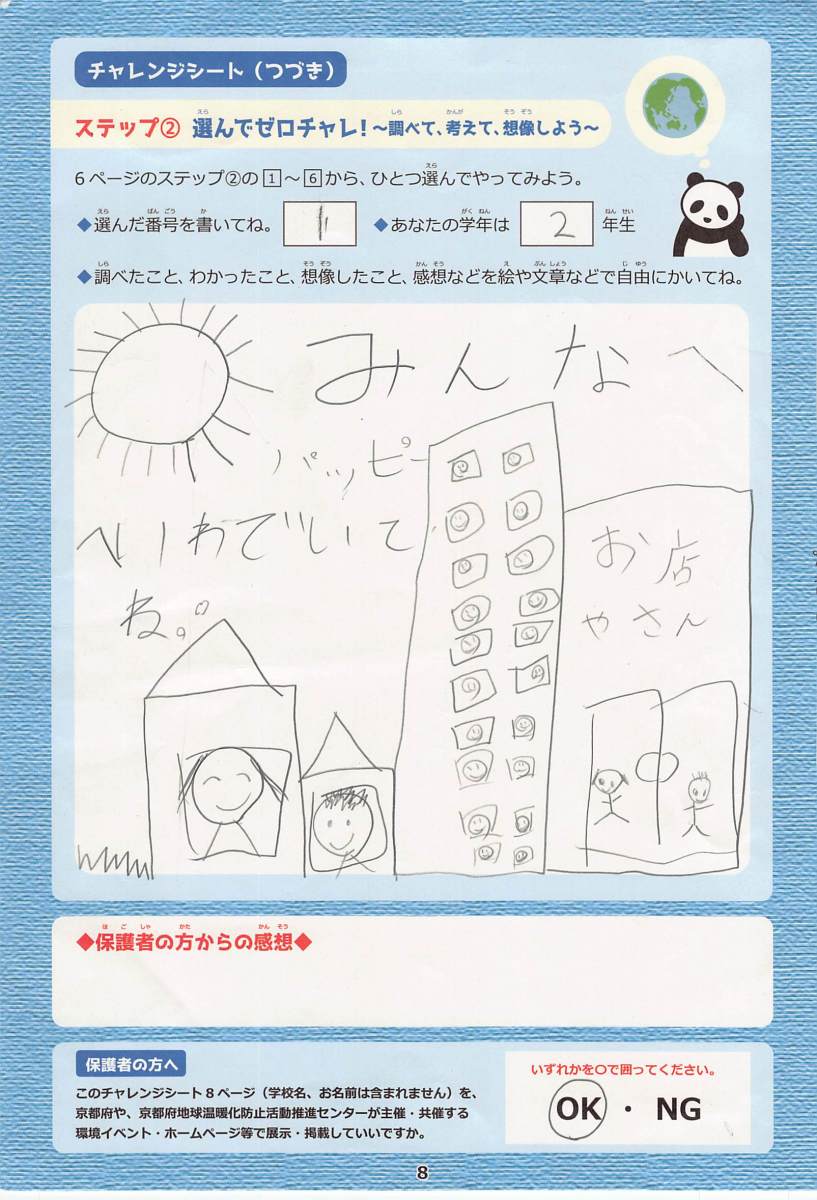 チャレンジシート（つづき）
ステップ② 選んでゼロチャレ！～調べて、考えて、想像しよう～
6ページのステップ②の1～6から、ひとつ選んでやってみよう。
◆選んだ番号を書いてね。 1 ◆あなたの学年は 2 年生
◆調べたこと、わかったこと、想像したこと、感想などを絵や文章などで自由にかいてね。
みんなへ
ハッピー
へいわでいて
ね。
お店
やさん
◆保護者の方からの感想◆
保護者の方へ
このチャレンジシート8ページ（学校名、お名前は含まれません）を、
京都府や、京都府地球温暖化防止活動推進センターが主催・共催する
環境イベント・ホームページ等で展示・掲載していいですか。
いずれかを○で囲ってください。
OK ・ NG
8